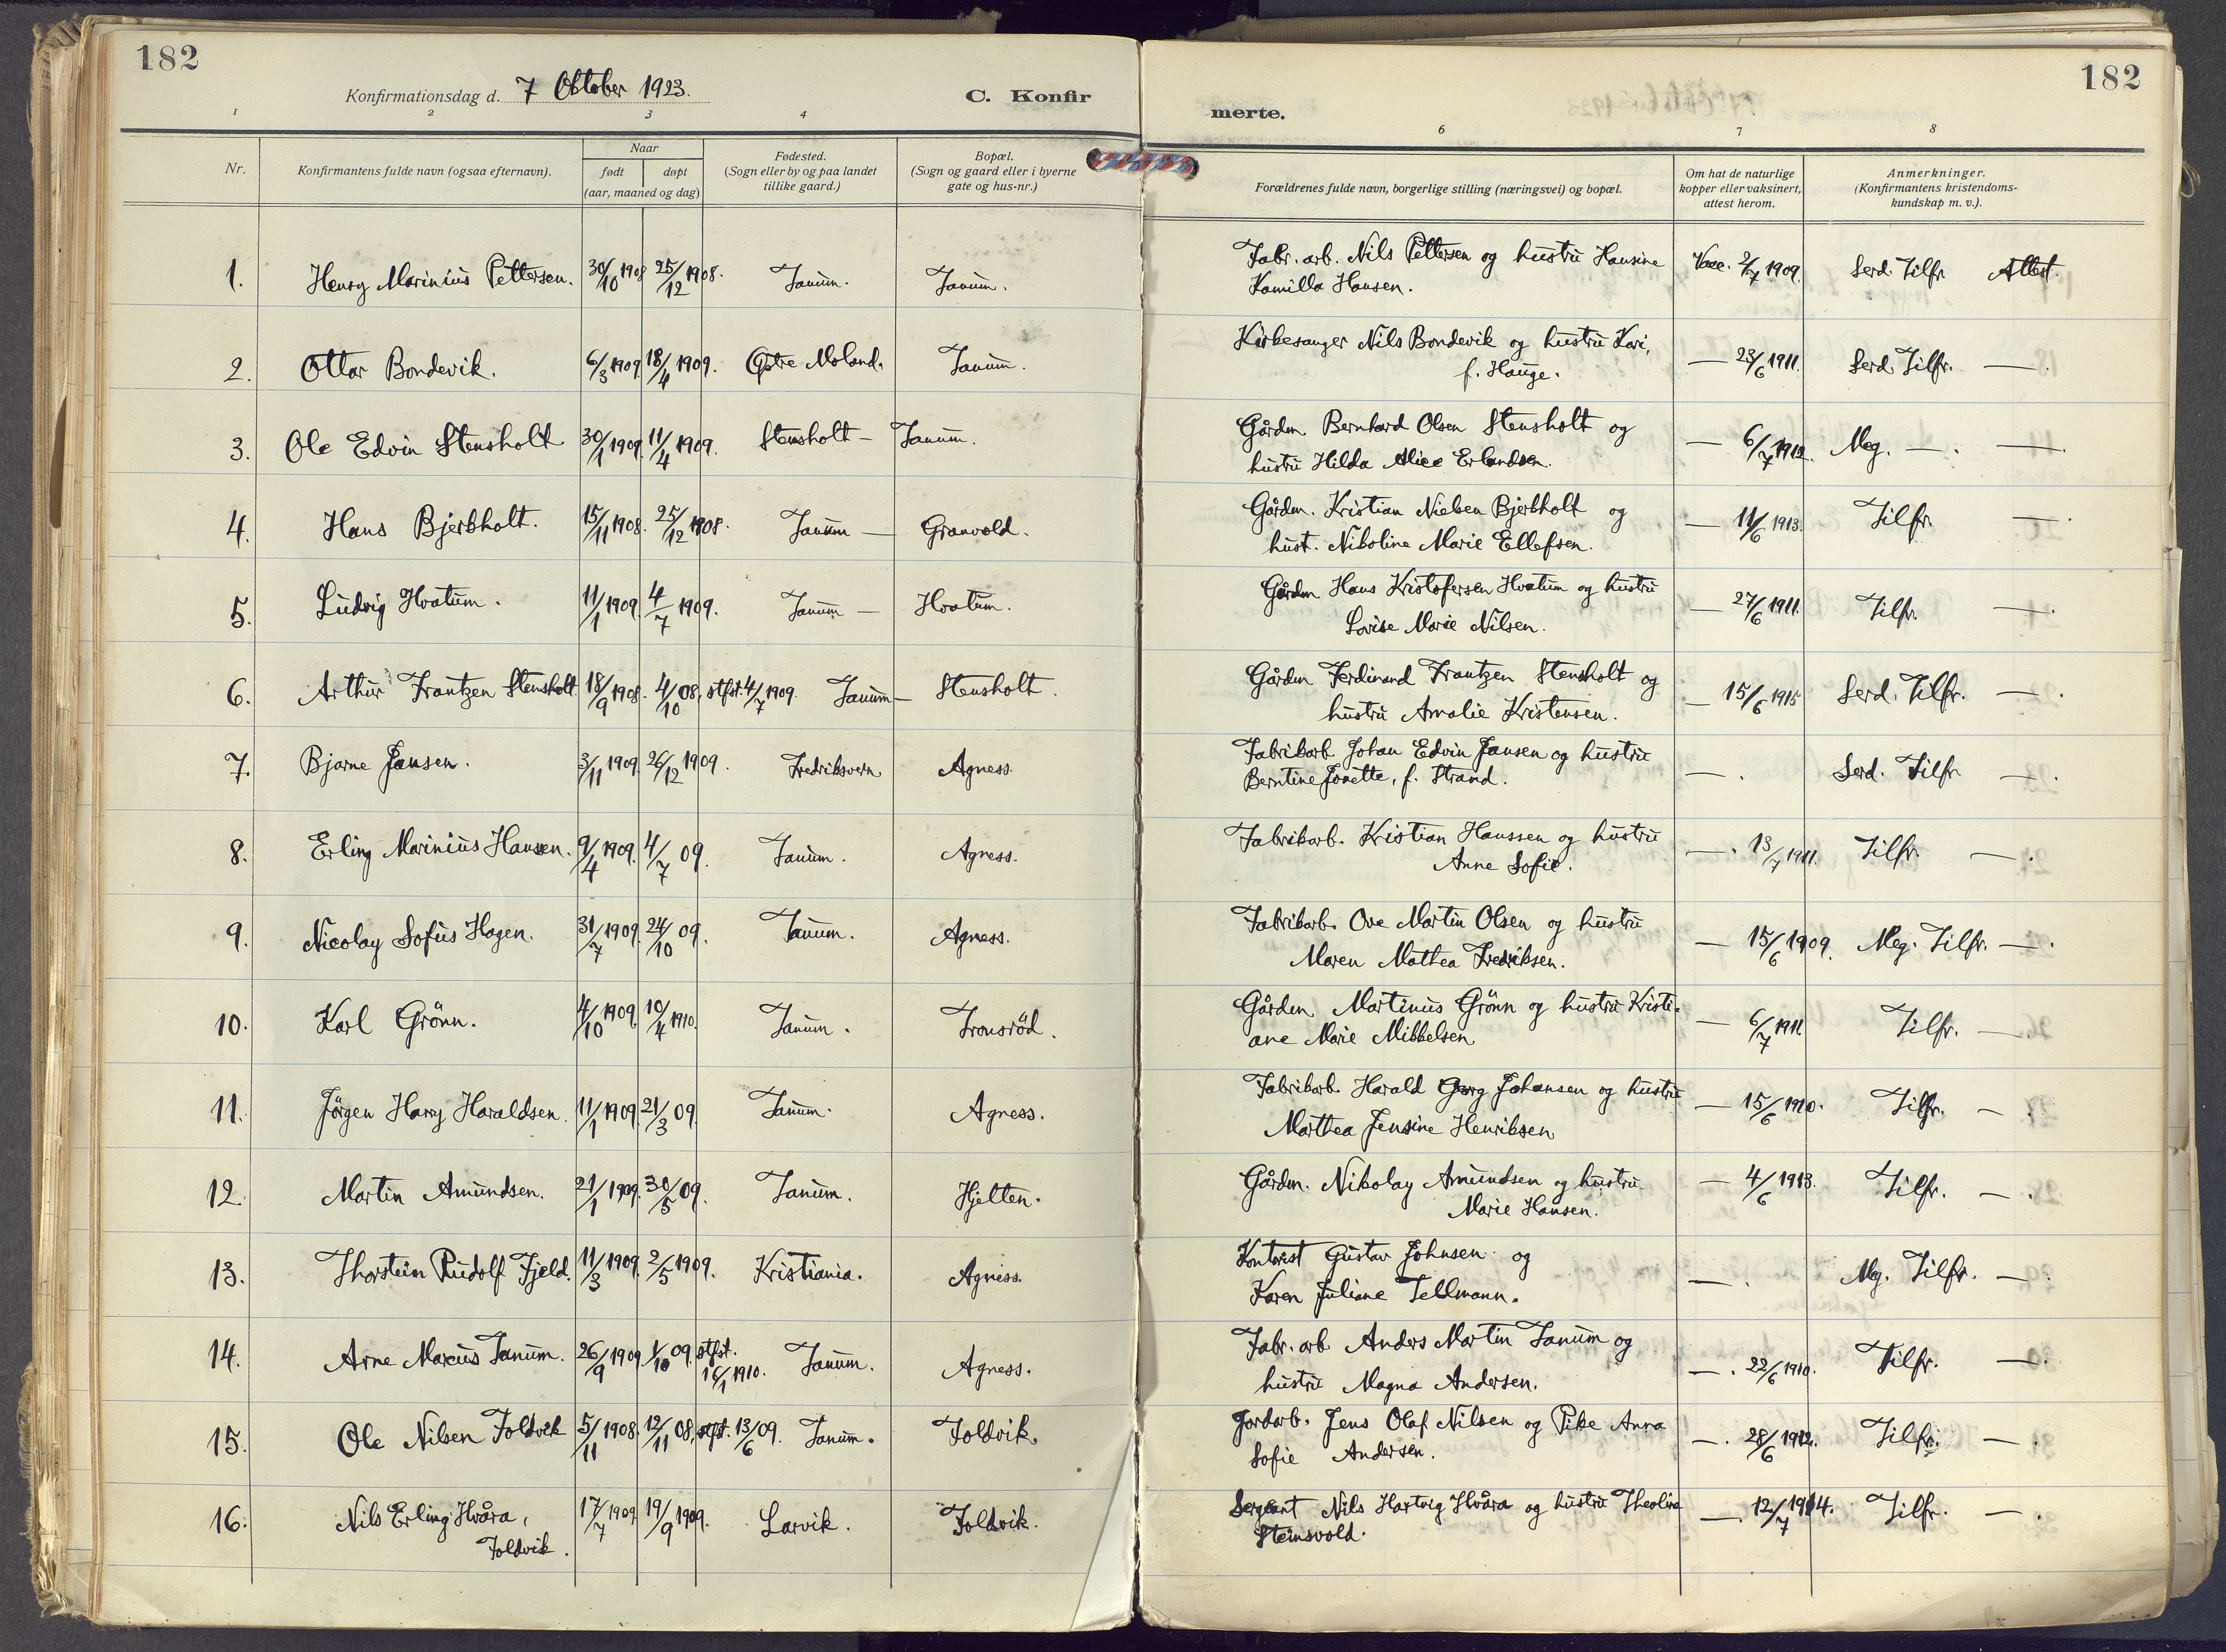 182
182
Konfirmationsdag d. 7 Oktober 1923.
C. Konfirmerte.
1 2 3 4 6 7 8
Nr. Konfirmantens fulde navn (ogsaa efternavn). Naar født døpt (aar, maaned og dag) Fødested. (Sogn eller by og paa landet tillike gaard.) Bopæl. (Sogn og gaard eller i byerne gate og hus-nr.) Forældrenes fulde navn, borgerlige stilling (næringsvei) og bopæl. Om hat de naturlige kopper eller vaksinert, attest herom. Anmerkninger. (Konfirmantens kristendoms-kundskap m. v.).
1. Henry Marinius Pettersen. 30/10 1908 25/12 1908. Tanum. Tanum. Fabr. arb. Nils Pettersen og hustru Hansine Kamilla Hansen. Vacc. 2/7 1909. Serd. Tilfr Attest.
2. Ottar Bondevik. 6/3 1909 18/4 1909. Østre Moland. Tanum. Kirkesanger Nils Bondevik og hustru Kari, f. Hauge. — 23/6 1911. Serd. Tilfr. —.
3. Ole Edvin Stensholt 30/1 1909 11/4 1909. Stensholt — Tanum. Gårdm. Bernhard Olsen Stensholt og hustru Hilda Alice Erlandsen. — 6/7 1912. Meg. —. —.
4. Hans Bjerkholt. 15/11 1908. 25/12 1908. Tanum — Granvold. Gårdm. Kristian Nielsen Bjerkholt og hust. Nikoline Marie Ellefsen. — 11/6 1913. Tilfr. —.
5. Ludvig Hvatum. 11/1 1909. 4/7 1909. Tanum — Hvatum. Gårdm Hans Kristofersen Hvatum og hustru Lovise Marie Nilsen. — 27/6 1911. Tilfr. —.
6. Arthur Frantzen Stensholt. 18/9 1908. 4/10 08, stfst. 4/7 1909. Tanum — Stensholt. Gårdm Ferdinand Frantzen Stensholt og hustru Amalie Kristensen. — 15/6 1915 Serd. Tilfr. —.
7. Bjarne Jansen. 3/11 1909. 26/12 1909. Fredriksvern Agness. Fabrikarb. Johan Edvin Jansen og hustru Berntine Jonette, f. Strand. —. Serd. Tilfr —.
8. Erling Marinius Hansen. 9/4 1909. 4/7 09. Tanum. Agness. Fabrikarb. Kristian Hanssen og hustru Anne Sofie. —. 13/7 1911. Tilfr. —.
9. Nicolay Sofus Hagen. 31/7 1909. 24/10 09. Tanum. Agness. Fabrikarb. Ove Martin Olsen og hustru Maren Mathea Fredriksen. — 15/6 1909. Meg. Tilfr. —.
10. Karl Grönn. 4/10 1909. 10/4 1910. Tanum. Tronsröd. Gårdm. Martinus Grönn og hustru Kristi- ane Marie Mikkelsen — 6/7 1911 Tilfr. —.
11. Jörgen Harry Haraldsen. 11/1 1909. 21/3 09. Tanum. Agness. Fabrikarb. Harald Georg Johansen og hustru Marthea Jensine Henriksen — 15/6 1910. Tilfr. —.
12. Martin Amundsen. 21/1 1909. 30/5 09. Tanum. Hjelten. Gårdm. Nikolay Amundsen og hustru Marie Hansen. — 4/6 1913. Tilfr. —.
13. Thorstein Rudolf Fjeld. 11/3 1909. 2/5 1909. Kristiania. Agness. Kontorist Gustav Johnsen og Karen Juliane Tellmann. —. Meg. Tilfr. —.
14. Arne Marcus Tanum. 26/9 1909 1/10 09. stfst. 16/1 1910. Tanum. Agness. Fabr. arb Anders Martin Tanum og hustru Magna Andersen. —. 22/6 1910. Tilfr. —.
15. Ole Nilsen Foldvik 5/11 1908. 12/11 08, stfst. 13/6 09. Tanum. Foldvik. Jordarb. Jens Olaf Nilsen og Pike Anna Sofie Andersen. —. 28/6 1912. Tilfr. —.
16. Nils Erling Hvåra, Foldvik. 17/7 1909 19/9 1909. Larvik. Foldvik. Sergeant Nils Hartvig Hvåra og hustru Theoline Steinsvold. —. 12/7 1914. Tilfr. —.